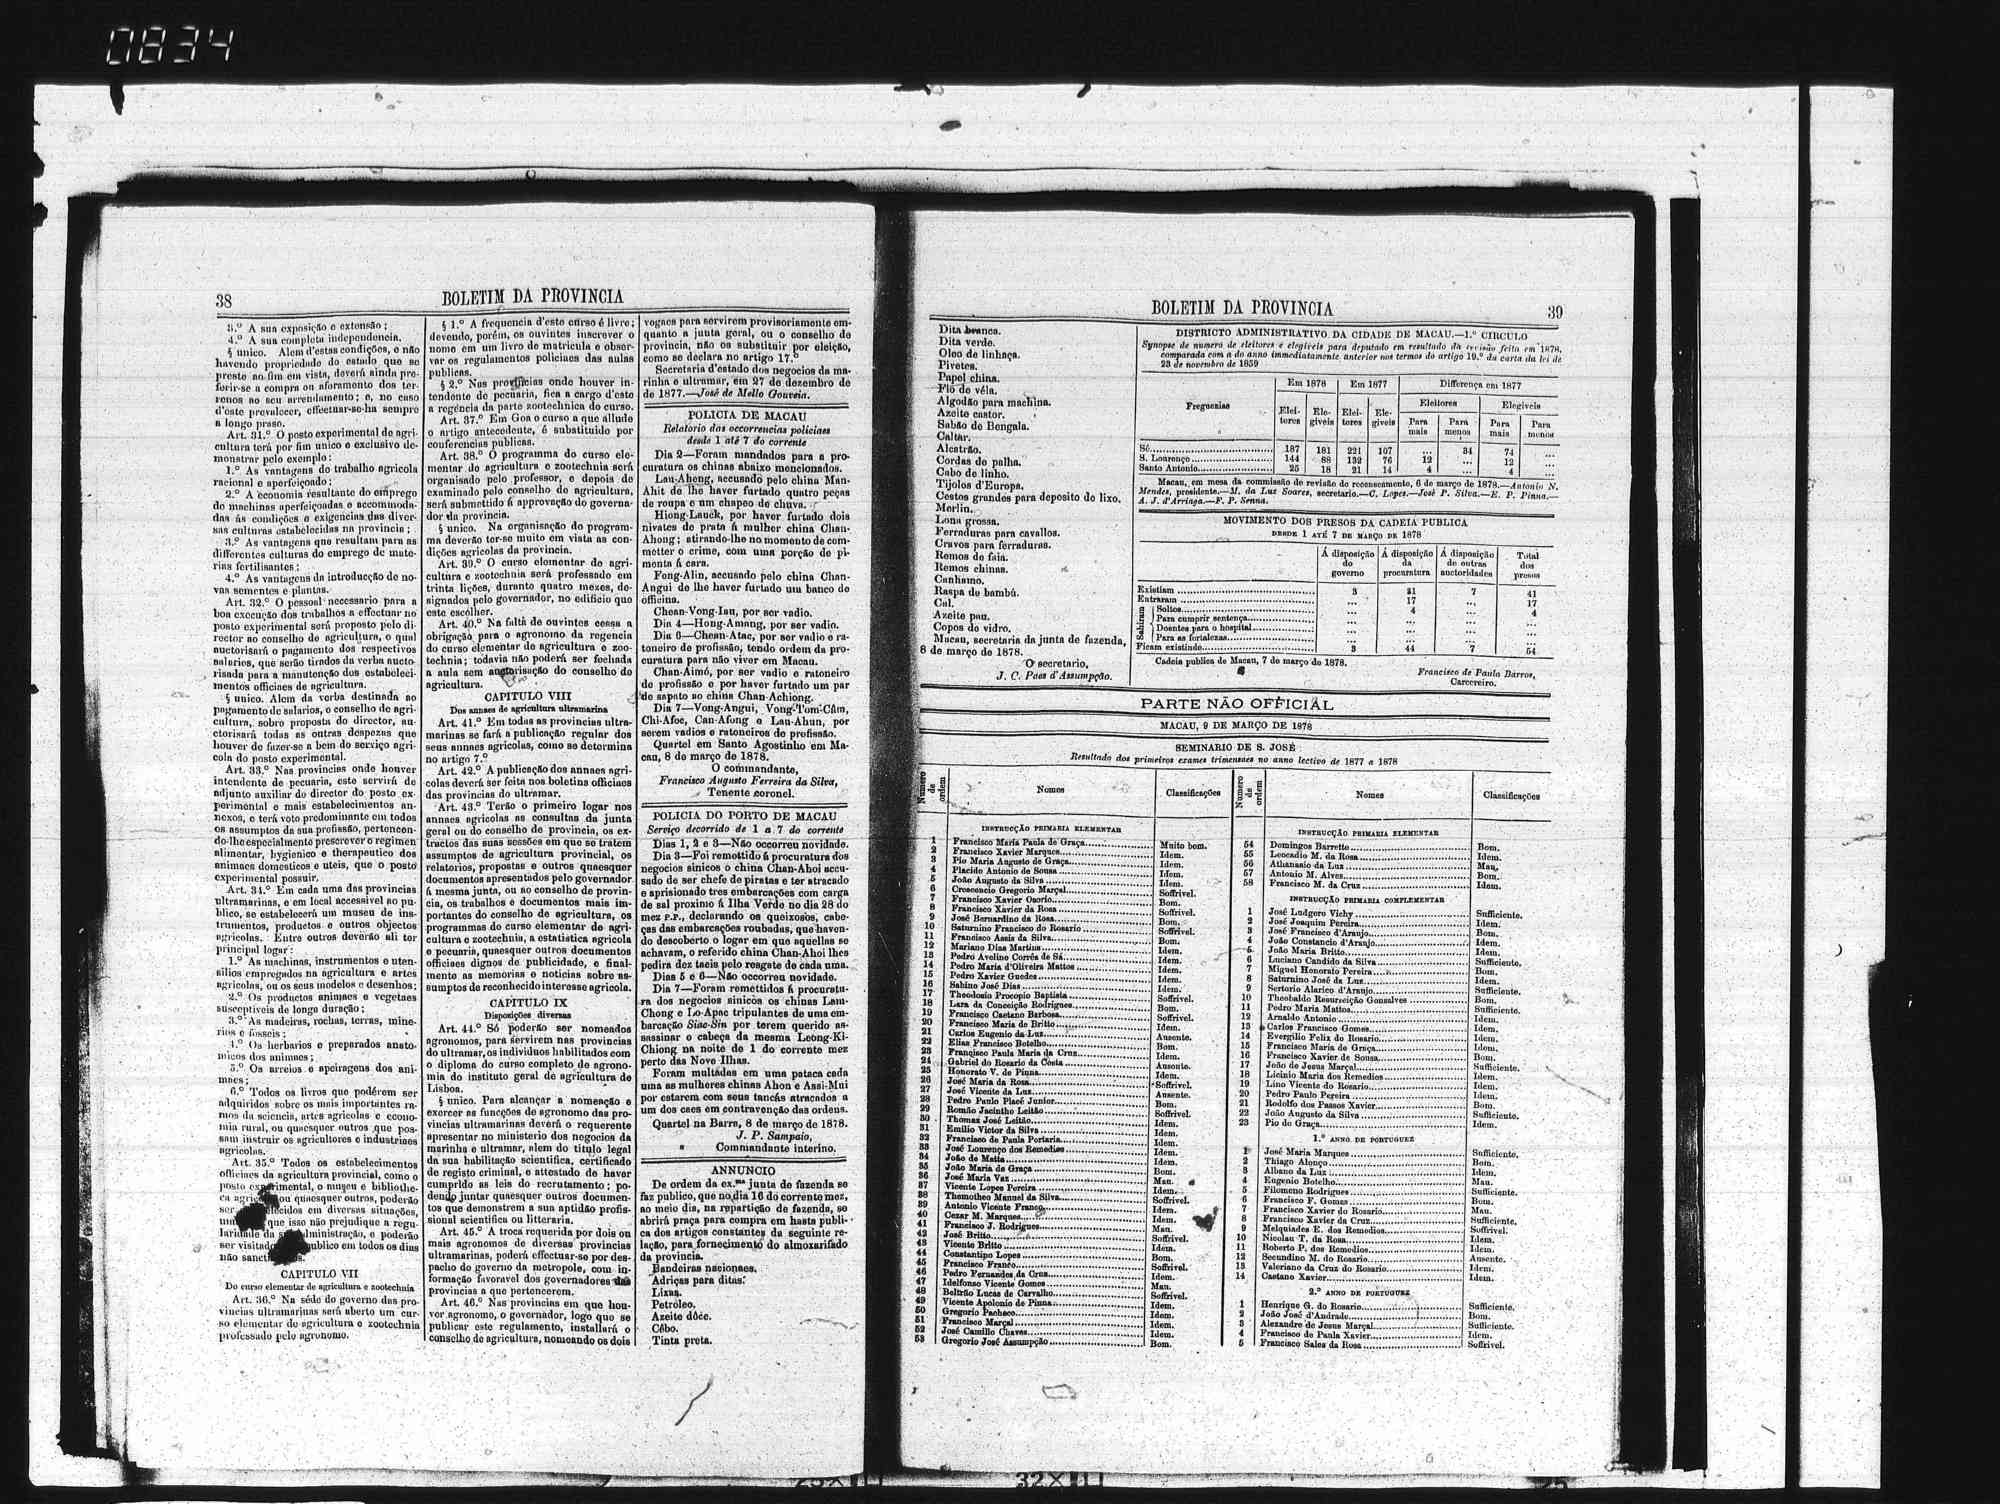 0834
38
BOLETIM DA PROVINCIA
3.º A sua exposição e extensão;
4.º A sua completa independencia.
§ unico. Alem d'estas condições, e não
havendo propriedade do estado que se
preste ao fim em vista, deverá ainda pre-
ferir-se a compra ou aforamento dos ter-
renos ao seu arrendamento; e, no caso
d'este prevalecer, effectuar-se-ha sempre
a longo praso.
Art. 31.º O posto experimental de agri-
cultura terá por fim unico e exclusivo de-
monstrar pelo exemplo:
1.º As vantagens do trabalho agricola
racional e aperfeiçoado;
2.º A economia resultante do emprego
de machinas aperfeiçoadas e accommoda-
das ás condições e exigencias das diver-
sas culturas estabelecidas na provincia;
3.º As vantagens que resultam para as
differentes culturas do emprego de mate-
rias fertilisantes;
4.º As vantagens da introducção de no-
vas sementes e plantas.
Art. 32.º O pessoal necessario para a
boa execução dos trabalhos a effectuar no
posto experimental será proposto pelo di-
rector ao conselho de agricultura, o qual
auctorisará o pagamento dos respectivos
salarios, que serão tirados da verba aucto-
risada para a manutenção dos estabeleci-
mentos officiaes de agricultura.
§ unico. Alem da verba destinada ao
pagamento de salarios, o conselho de agri-
cultura, sobre proposta do director, au-
ctorisará todas as outras despezas que
houver de fazer-se a bem do serviço agri-
cola do posto experimental.
Art. 33.º Nas provincias onde houver
intendente de pecuaria, este servirá de
adjunto auxiliar do director do posto ex-
perimental e mais estabelecimentos an-
nexos, e terá voto predominante em todos
os assumptos da sua profissão, pertencen-
do-lhe especialmente prescrever o regimen
alimentar, hygienico e therapeutico dos
animaes domesticos e uteis, que o posto
experimental possuir.
Art. 34.º Em cada uma das provincias
ultramarinas, e em local accessivel ao pu-
blico, se estabelecerá um museu de ins-
trumentos, productos e outros objectos
agricolas. Entre outros deverão ali ter
principal logar:
1.º As machinas, instrumentos e uten-
silios empregados na agricultura e artes
agricolas, ou os seus modelos e desenhos;
2.º Os productos animaes e vegetaes
susceptiveis de longa duração;
3.º As madeiras, rochas, terras, mine-
rios e fosseis;
4.º Os herbarios e preparados anato-
micos dos animaes;
5.º Os arreios e apeiragens dos ani-
maes;
6.º Todos os livros que podérem ser
adquiridos sobre os mais importantes ra-
mos da sciencia, artes agricolas e econo-
mia rural, ou quaesquer outros que pos-
sam instruir os agricultores e industriaes
agricolas.
Art. 35.º Todos os estabelecimentos
officiaes da agricultura provincial, como o
posto experimental, o museu e bibliothe-
ca ou quaesquer outros, poderão
ser em diversas situações,
que isso não prejudique a regu-
laridade da administração, e poderão
ser em todos os dias
não
CAPITULO VII
Do curso elementar de agricultura e zootechnia
Art. 36.º Na séde do governo das pro-
vincias ultramarinas será aberto um cur-
so elementar de agricultura e zootechnia
professado pelo agronomo.
§ 1.º A frequencia d'este curso é livre;
devendo, porém, os ouvintes inscrever o
nome em um livro de matricula e obser-
var os regulamentos policiaes das aulas
publicas.
§ 2.º Nas provincias onde houver in-
tendente de pecuaria, fica a cargo d'este
a regencia da parte zootechnica do curso.
Art. 37.º Em Goa o curso a que allude
o artigo antecedente, é substituido por
conferencias publicas.
Art. 38.º O programma do curso ele-
mentar de agricultura e zootechnia será
organisado pelo professor, e depois de
examinado pelo conselho de agricultura,
será submettido á approvação do governa-
dor da provincia.
§ unico. Na organisação do program-
ma deverão ter-se muito em vista as con-
dições agricolas da provincia.
Art. 39.º O curso elementar de agri-
cultura e zootechnia será professado em
trinta lições, durante quatro mezes, de-
signados pelo governador, no edificio que
este escolher.
Art. 40.º Na falta de ouvintes cessa a
obrigação para o agronomo da regencia
do curso elementar de agricultura e zoo-
technia; todavia não poderá ser fechada
a aula sem auctorisação do conselho de
agricultura.
CAPITULO VIII
Dos annaes de agricultura ultramarina
Art. 41.º Em todas as provincias ultra-
marinas se fará a publicação regular dos
seus annaes agricolas, como se determina
no artigo 7.º
Art. 42.º A publicação dos annaes agri-
colas deverá ser feita nos boletins officiaes
das provincias do ultramar.
Art. 43.º Terão o primeiro logar nos
annaes agricolas as consultas da junta
geral ou do conselho de provincia, os ex-
tractos das suas sessões em que se tratem
assumptos de agricultura provincial, os
relatorios, propostas e outros quaesquer
documentos apresentados pelo governador
á mesma junta, ou ao conselho de provin-
cia, os trabalhos e documentos mais im-
portantes do conselho de agricultura, os
programmas do curso elementar de agri-
cultura e zootechnia, a estatistica agricola
e pecuaria, quaesquer outros documentos
officiaes dignos de publicidade, e final-
mente as memorias e noticias sobre as-
sumptos de reconhecido interesse agricola.
CAPITULO IX
Disposições diversas
Art. 44.º Só poderão ser nomeados
agronomos, para servirem nas provincias
do ultramar, os individuos habilitados com
o diploma do curso completo de agrono-
mia do instituto geral de agricultura de
Lisboa.
§ unico. Para alcançar a nomeação e
exercer as funcções de agronomo das pro-
vincias ultramarinas deverá o requerente
apresentar no ministerio dos negocios da
marinha e ultramar, alem do titulo legal
da sua habilitação scientifica, certificado
de registo criminal, e attestado de haver
cumprido as leis do recrutamento; po-
dendo juntar quaesquer outros documen-
tos que demonstrem a sua aptidão profis-
sional scientifica ou litteraria.
Art. 45.º A troca requerida por dois ou
mais agronomos de diversas provincias
ultramarinas, poderá effectuar-se por des-
pacho do governo da metropole, com in-
formação favoravel dos governadores das
provincias a que pertencerem.
Art. 46.º Nas provincias em que hou-
ver agronomo, o governador, logo que se
publicar este regulamento, installará o
conselho de agricultura, nomeando os dois
vogaes para servirem provisoriamente em-
quanto a junta geral, ou o conselho de
provincia, não os substituir por eleição,
como se declara no artigo 17.º
Secretaria d'estado dos negocios da ma-
rinha e ultramar, em 27 de dezembro de
de 1877.—José de Mello Gouveia.
POLICIA DE MACAU
Relatorio das occorrencias policiaes
desde 1 até 7 do corrente
Dia 2—Foram mandados para a pro-
curatura os chinas abaixo mencionados.
Lau-Aheng, accusado pelo china Man-
Ahit de lhe haver furtado quatro peças
de roupa e um chapeo de chuva.
Hiong-Lauck, por haver furtado dois
nivates de prata á mulher china Chan-
Ahong; atirando-lhe no momento de com-
metter o crime, com uma porção de pi-
menta á cara.
Fong-Alin, accusado pelo china Chan-
Angui de lhe haver furtado um banco de
officina.
Chean-Vong-Iau, por ser vadio.
Dia 4—Hong-Amang, por ser vadio.
Dia 6—Chean-Atac, por ser vadio e ra-
toneiro de profissão, tendo ordem da pro-
curatura para não viver em Macau.
Chan-Aimó, por ser vadio e ratoneiro
de profissão e por haver furtado um par
de sapato ao china Chan-Achiong.
Dia 7—Vong-Angui, Vong-Tom-Câm,
Chi-Afoc, Can-Afong e Lau-Ahun, por
serem vadios e ratoneiros de profissão.
Quartel em Santo Agostinho em Ma-
cau, 8 de março de 1878.
O commandante,
Francisco Augusto Ferreira da Silva,
Tenente coronel.
POLICIA DO PORTO DE MACAU
Serviço decorrido de 1 a 7 do corrente
Dias 1, 2 e 3—Não occorreu novidade.
Dia 3—Foi remettido á procuratura dos
negocios sinicos o china Chan-Ahoi accu-
sado de ser chefe de piratas e ter atracado
e aprisionado tres embarcações com carga
de sal proximo á Ilha Verde no dia 28 do
mez P.P., declarando os queixosos, cabe-
ças das embarcações roubadas, que haven-
do descoberto o logar em que aquellas se
achavam, o referido china Chan-Ahoi lhes
pedira dez taeis pelo resgate de cada uma.
Dias 5 e 6—Não occorreu novidade.
Dia 7—Foram remettidos á procuratu-
ra dos negocios sinicos os chinas Lam-
Chong e Lo-Apac tripulantes de uma em-
barcação Siac-Sin por terem querido as-
sassinar o cabeça da mesma Leong-Ki-
Chiong na noite de 1 do corrente mez
perto das Nove Ilhas.
Foram multadas em uma pataca cada
uma as mulheres chinas Ahon e Assi-Mui
por estarem com seus tancás atracados a
um dos caes em contravenção das ordens.
Quartel na Barra, 8 de março de 1878.
J. P. Sampaio,
Commandante interino.
ANNUNCIO
De ordem da ex.ma junta de fazenda se
faz publico, que no dia 16 do corrente mez,
ao meio dia, na repartição de fazenda, se
abrirá praça para compra em hasta publi-
ca dos artigos constantes da seguinte re-
lação, para fornecimento do almoxarifado
da provincia.
Bandeiras nacionaes.
Adriças para ditas.
Lixas.
Petróleo.
Azeite dôce.
Cêbo.
Tinta preta.
BOLETIM DA PROVINCIA
39
Dita branca.
Dita verde.
Oleo de linhaça.
Pivetes.
Papel china.
Fio de véla.
Algodão para machina.
Azeite castor.
Sabão de Bengala.
Caltar.
Alcatrão.
Cordas de palha.
Cabo de linho.
Tijolos d'Europa.
Cestos grandes para deposito de lixo.
Merlin.
Lona grossa.
Ferraduras para cavallos.
Cravos para ferraduras.
Remos de faia.
Remos chinas.
Canhamo.
Raspa de bambú.
Cal.
Azeite pau.
Copos de vidro.
Macau, secretaria da junta de fazenda,
8 de março de 1878.
O secretario,
J. C. Paes d'Assumpção.
DISTRICTO ADMINISTRATIVO DA CIDADE DE MACAU.—1.º CIRCULO
Synopse de numero de eleitores e elegiveis para deputado em resultado da revisão feita em 1878,
comparada com a do anno immediatamente anterior nos termos do artigo 19.º da carta da lei de
23 de novembro de 1859
Freguezias Em 1878 Em 1877 Differença em 1877
Eleitores Elegiveis
Elei-tores Ele-giveis Elei-tores Ele-giveis Para mais Para menos Para mais Para menos
Sé 187 181 221 107 ... 34 74 ...
S. Lourenço 144 88 132 76 12 ... 12 ...
Santo Antonio 25 18 21 14 4 ... 4 ...
Macau, em mesa da commissão de revisão do recenseamento, 6 de março de 1878.—Antonio N.
Mendes, presidente.—M. da Luz Soares, secretario.—C. Lopes.—José P. Silva.—E. P. Pinna.—
A. J. d'Arriaga.—F. P. Senna.
MOVIMENTO DOS PRESOS DA CADEIA PUBLICA
DESDE 1 ATÉ 7 DE MARÇO DE 1878
Á disposição do governo Á disposição da procuratura Á disposição de outras auctoridades Total dos presos
Existiam 3 31 7 41
Entraram ... 17 ... 17
Sahiram
Soltos ... 4 ... 4
Para cumprir sentença ... ... ... ...
Doentes para o hospital ... ... ... ...
Para as fortalezas ... ... ... ...
Ficam existindo 3 44 7 54
Cadeia publica de Macau, 7 de março de 1878.
Francisco de Paula Barros,
Carcereiro.
PARTE NÃO OFFICIAL
MACAU, 9 DE MARÇO DE 1878
SEMINARIO DE S. JOSÉ
Resultado dos primeiros exames trimensaes no anno lectivo de 1877 a 1878
Numero de ordem Nomes Classificações
INSTRUCÇÃO PRIMARIA ELEMENTAR
1 Francisco Maria Paula de Graça Muito bom.
2 Francisco Xavier Marques Idem.
3 Pio Maria Augusto de Graça Idem.
4 Placido Antonio de Sousa Idem.
5 João Augusto da Silva Idem.
6 Crescencio Gregorio Marçal Soffrivel.
7 Francisco Xavier Osorio Bom.
8 Francisco Xavier da Rosa Soffrivel.
9 José Bernardino da Rosa Bom.
10 Saturnino Francisco do Rosario Soffrivel.
11 Francisco Assis da Silva Bom.
12 Mariano Dias Martins Idem.
13 Pedro Avelino Corrêa de Sá Idem.
14 Pedro Maria d'Oliveira Mattos Idem.
15 Pedro Xavier Guedes Idem.
16 Sabino José Dias Idem.
17 Theodosio Procopio Baptista Soffrivel.
18 Lara da Conceição Rodrigues Bom.
19 Francisco Caetano Barbosa Soffrivel.
20 Francisco Maria de Britto Idem.
21 Carlos Eugenio da Luz Ausente.
22 Elias Francisco Botelho Bom.
23 Francisco Paula Maria da Cruz Idem.
24 Gabriel do Rosario da Costa Ausente.
25 Honorato V. de Pinna Idem.
26 José Maria da Rosa Soffrivel.
27 José Vicente da Luz Ausente.
28 Pedro Paulo Placé Junior Bom.
29 Romão Jacintho Leitão Soffrivel.
30 Thomas José Leitão Idem.
31 Emilio Victor da Silva Idem.
32 Francisco de Paula Portaria Idem.
33 José Lourenço dos Remedios Idem.
34 João de Matta Idem.
35 João Maria de Graça Bom.
36 José Maria Vaz Mau.
37 Vicente Lopes Pereira Idem.
38 Themotheo Manuel da Silva Soffrivel.
39 Antonio Vicente Franco Idem.
40 Cezar M. Marques Idem.
41 Francisco J. Rodrigues Mau.
42 José Britto Soffrivel.
43 Vicente Britto Idem.
44 Constantino Lopes Bom.
45 Francisco Franco Soffrivel.
46 Pedro Fernandes da Cruz Idem.
47 Idelfonso Vicente Gomes Mau.
48 Beltrão Lucas de Carvalho Soffrivel.
49 Vicente Apolonio de Pinna Idem.
50 Gregorio Pacheco Idem.
51 Francisco Marçal Idem.
52 José Camillo Chaves Idem.
53 Gregorio José Assumpção Bom.
Numero de ordem Nomes Classificações
INSTRUCÇÃO PRIMARIA ELEMENTAR
54 Domingos Barretto Bom.
55 Leocadio M. da Rosa Idem.
56 Athanasio da Luz Mau.
57 Antonio M. Alves Bom.
58 Francisco M. da Cruz Idem.
INSTRUCÇÃO PRIMARIA COMPLEMENTAR
1 José Ludgero Vichy Sufficiente.
2 José Joaquim Pereira Idem.
3 José Francisco d'Araujo Bom.
4 João Constancio d'Araujo Idem.
5 João Maria Britto Idem.
6 Luciano Candido da Silva Sufficiente.
7 Miguel Honorato Pereira Bom.
8 Saturnino José da Luz Idem.
9 Sertorio Alarico d'Araujo Sufficiente.
10 Theobaldo Resurreição Gonsalves Bom.
11 Pedro Maria Mattos Sufficiente.
12 Arnaldo Antonio Idem.
13 Carlos Francisco Gomes Idem.
14 Evergilio Felix do Rosario Idem.
15 Francisco Maria de Graça Idem.
16 Francisco Xavier de Sousa Bom.
17 João de Jesus Marçal Sufficiente.
18 Licinio Maria dos Remedios Idem.
19 Lino Vicente do Rosario Idem.
20 Pedro Paulo Pereira Idem.
21 Rodolfo dos Passos Xavier Bom.
22 João Augusto da Silva Sufficiente.
23 Pio de Graça Idem.
1.º ANNO DE PORTUGUEZ
1 José Maria Marques Sufficiente.
2 Thiago Alonço Bom.
3 Albano da Luz Idem.
4 Eugenio Botelho Mau.
5 Filomeno Rodrigues Sufficiente.
6 Francisco F. Gomes Bom.
7 Francisco Xavier do Rosario Mau.
8 Francisco Xavier da Cruz Sufficiente.
9 Melquiades E. dos Remedios Soffrivel.
10 Nicolau T. da Rosa Idem.
11 Roberto P. dos Remedios Idem.
12 Secundino M. do Rosario Ausente.
13 Valeriano da Cruz do Rosario Idem.
14 Caetano Xavier Idem.
2.º ANNO DE PORTUGUEZ
1 Henrique G. do Rosario Sufficiente.
2 João José d'Andrade Bom.
3 Alexandre de Jesus Marçal Sufficiente.
4 Francisco de Paula Xavier Idem.
5 Francisco Sales da Rosa Soffrivel.